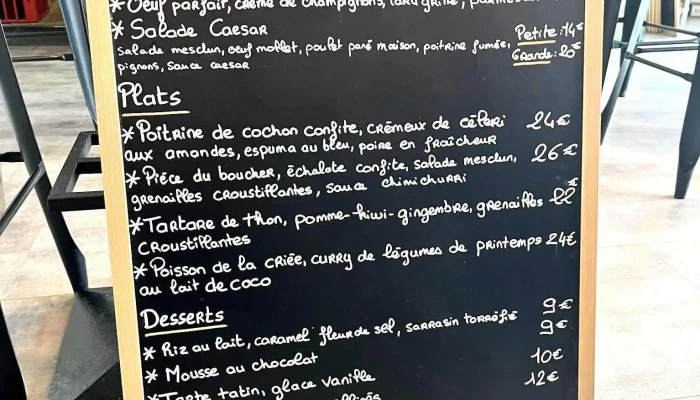 * Oeuf parfait, crème de champignons, lard grillé, parmesan
* Salade Caesar Petite: 14€
Salade mesclun, oeuf mollet, poulet pané maison, poitrine fumée, Grande: 20€
pignons, sauce caesar
Plats
* Poitrine de cochon confite, crémeux de céleri 24€
aux amondes, espuma au bleu, poire en fraîcheur
* Pièce du boucher, échalote confite, salade mesclun, 26€
grenailles croustillantes, sauce chimichurri
* Tartare de thon, pomme-kiwi-gingembre, grenailles 22€
croustillantes
* Poisson de la criée, curry de légumes de printemps 24€
au lait de coco
Desserts
* Riz au lait, caramel fleur de sel, sarrasin torréfié 9€
* Mousse au chocolat 9€
* Tarte tatin, glace vanille 10€
12€